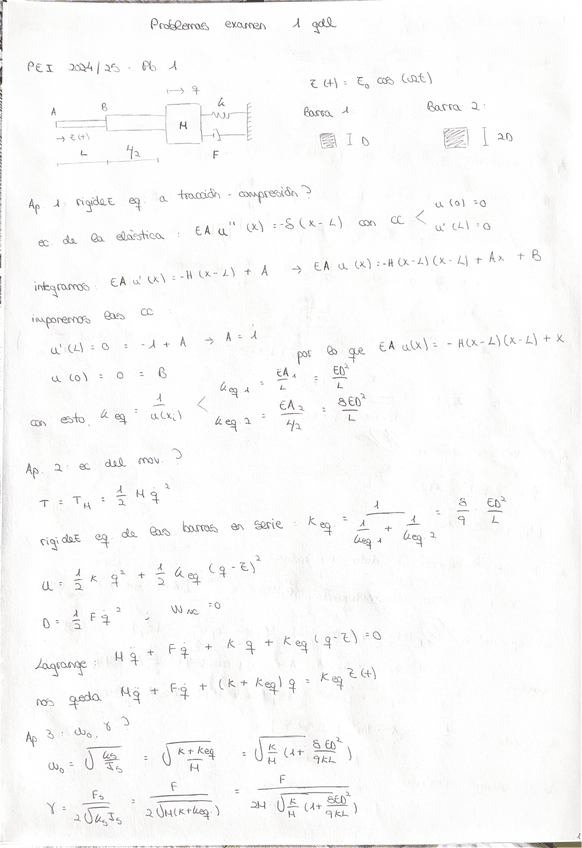 Problemas examen 1 gdl
PEI 2024/25 - Pb 1
z(t) = z₀ cos(ωt)
→ q
A B k
M
→ z(t)
L L/2 F
Barra 1 Barra 2:
D 2D
Ap 1 rigidez eq a tracción-compresión?
ec de la elástica: EA u''(x) = -δ(x-L) con CC < u(0)=0
u'(L)=0
integramos: EA u'(x) = -H(x-L) + A → EA u(x) = -H(x-L)(x-L) + Ax + B
imponemos las CC:
u'(L) = 0 = -1 + A → A = 1
u(0) = 0 = B
por lo que EA u(x) = -H(x-L)(x-L) + x
con esto, keq = 1/u(xi) < keq 1 = EA1/L = ED²/L
keq 2 = EA2/(L/2) = 8ED²/L
Ap. 2: ec del mov. ?
T = T_M = 1/2 M q̇²
rigidez eq. de las barras en serie: Keq = 1/(1/keq 1 + 1/keq 2) = 8/9 ED²/L
U = 1/2 k q² + 1/2 keq (q-z)²
D = 1/2 F q̇² ; W_NC = 0
Lagrange: M q̈ + F q̇ + K q + Keq (q-z) = 0
nos queda M q̈ + F q̇ + (K + Keq) q = Keq z(t)
Ap 3: ω₀, γ ?
ω₀ = √(ks/Js) = √((K+Keq)/M) = √(K/M (1 + 8ED²/9KL))
γ = Fs/(2√(ks Js)) = F/(2√(M(K+keq))) = F/(2M √(K/M (1 + 8ED²/9KL)))
1